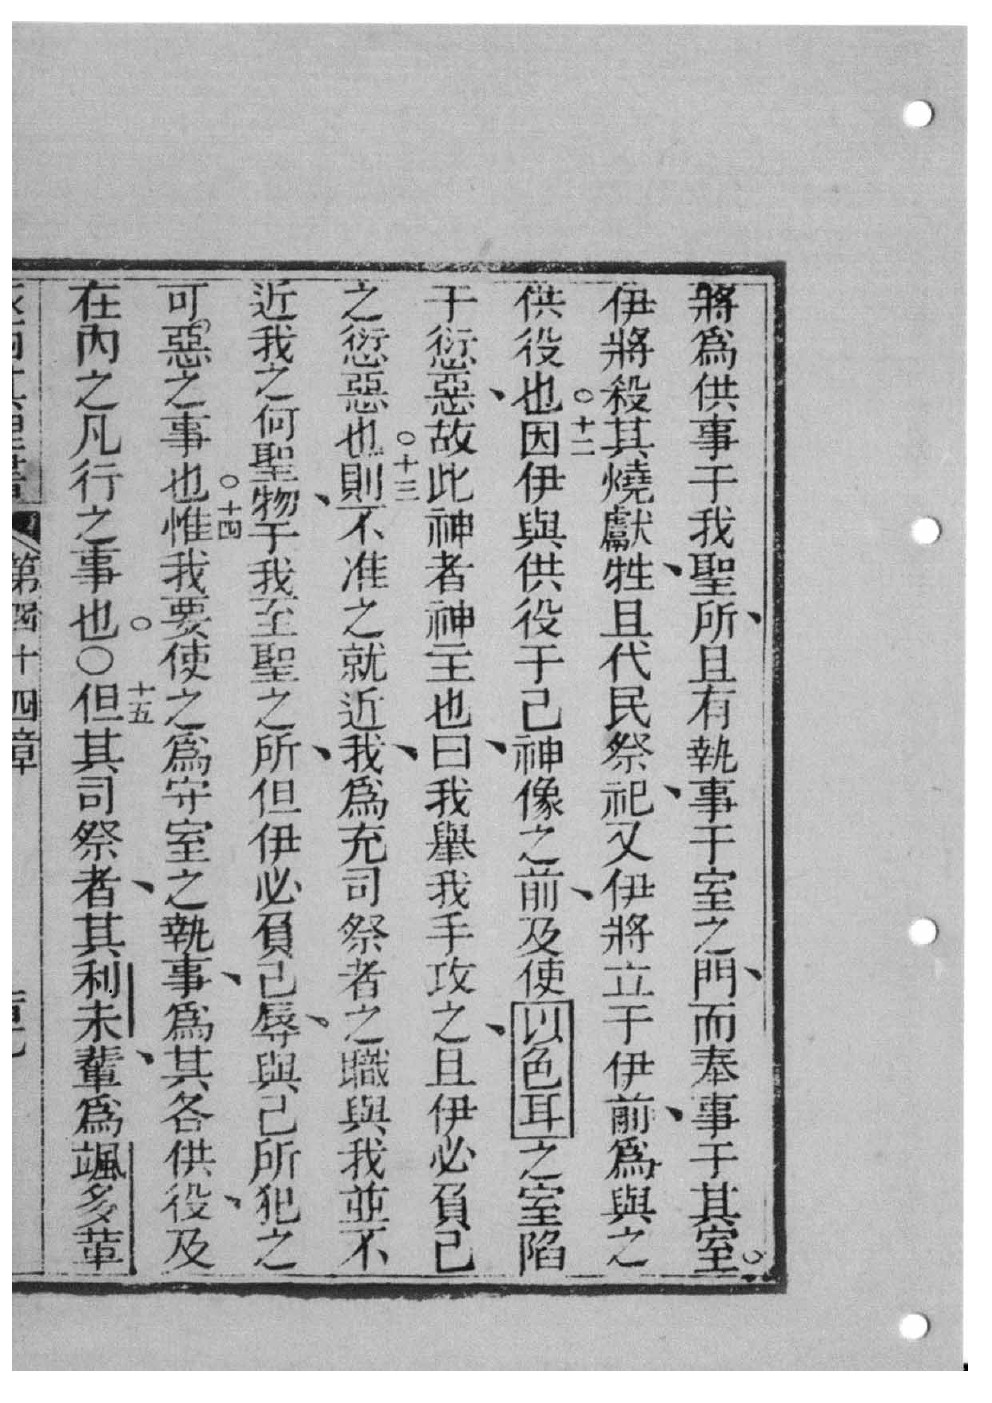 將爲供事于我聖所且有執事于室之門而奉事于其室
伊將殺其燒獻牲且代民祭祀又伊將立于伊前爲與之
供役也○十二因伊與供役于己神像之前及使以色耳之室陷
于愆惡故此神者神主也曰我舉我手攻之且伊必負己
之愆惡也○十三則不准之就近我爲充司祭者之職與我並不
近我之何聖物于我至聖之所但伊必負己辱與己所犯之
可惡之事也○十四惟我要使之爲守室之執事爲其各供役及
在內之凡行之事也○○十五但其司祭者其利未輩爲颯多輩
第四十四章